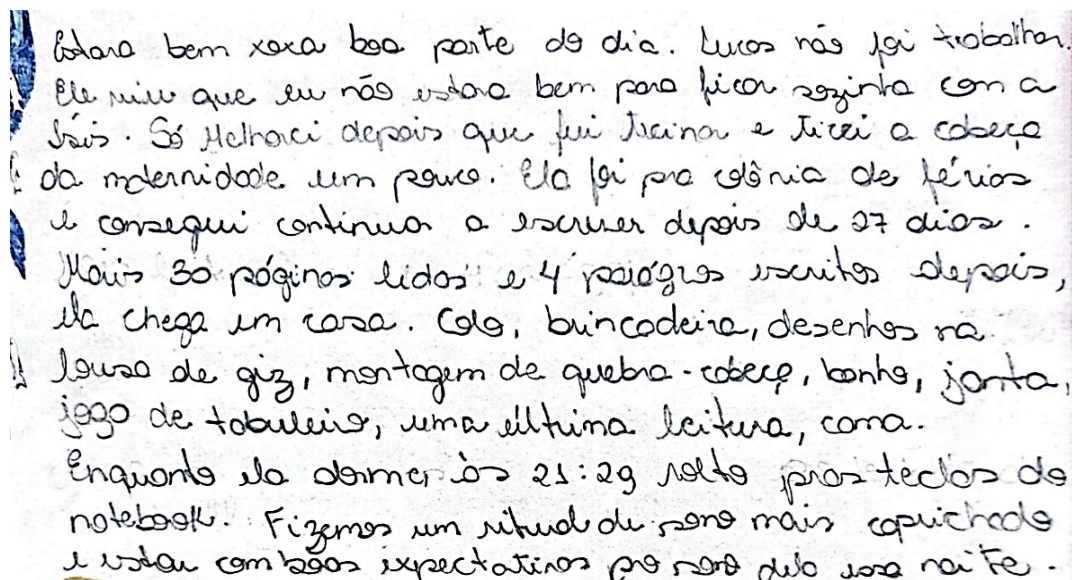 Estava bem xoxa boa parte do dia. Lucas não foi trabalhar.
Ele viu que eu não estava bem para ficar sozinha com a
Ísis. Só Melhorei depois que fui treinar e tirei a cabeça
da maternidade um pouco. Ela foi pra colônia de férias
e consegui continuar a escrever depois de 27 dias.
Mais 30 páginas lidas e 4 parágros escritos depois,
ela chega em casa. Colo, brincadeira, desenhos na
lousa de giz, montagem de quebra-cabeça, banho, janta,
jogo de tabuleiro, uma última leitura, cama.
Enquanto ela dorme, às 21:29 volto pras teclas do
notebook. Fizemos um ritual de sono mais caprichado
e estou com boas expectativas pro sono dela essa noite.